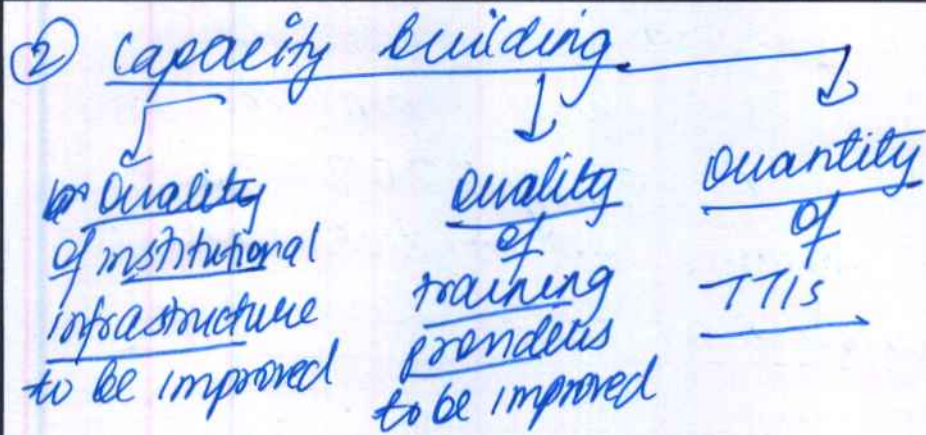 ② Capacity building
Quality
of institutional
infrastructure
to be improved
Quality
of
training
providers
to be improved
Quantity
of
TTIs